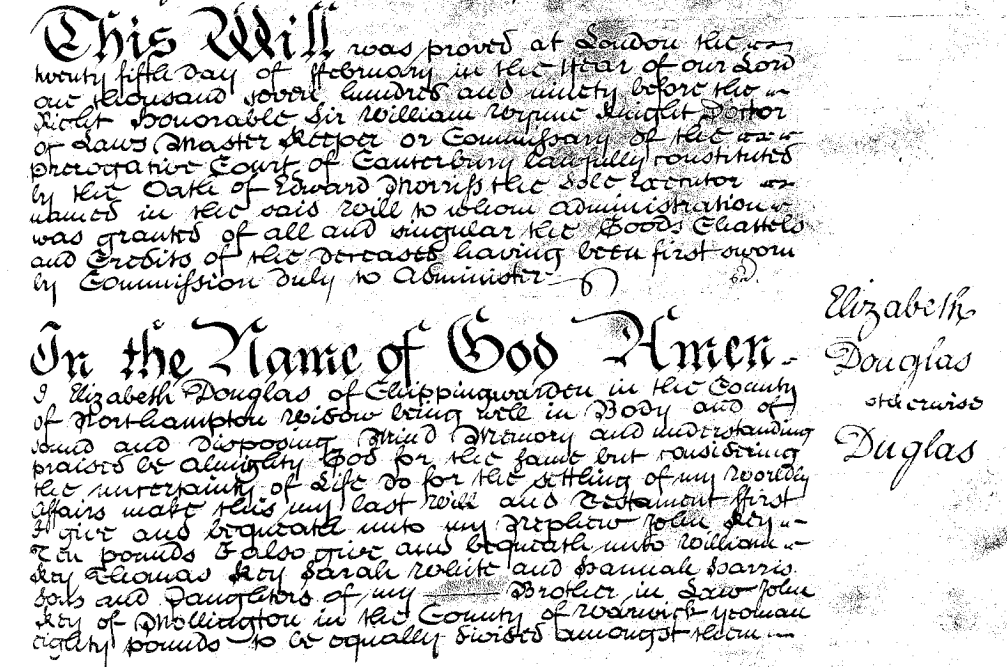 This Will was proved at London the
twenty fifth Day of ffebruary in the Year of our Lord
one thousand seven hundred and ninety before the
Right Honorable Sir William Wynne Knight Doctor
of Laws Master Keeper or Commissary of the
Prerogative Court of Canterbury lawfully constituted
by the Oath of Edward Morriss the sole Executor
named in the said Will to whom Administration
was granted of all and singular the Goods Chattels
and Credits of the deceased having been first sworn
by Commission duly to Administer
In the Name of God Amen
I Elizabeth Douglas of Chippingwarden in the County
of Northampton Widow being well in Body and of
sound and disposing Mind Memory and understanding
praised be almighty God for the same but considering
the uncertainty of Life do for the settling of my worldly
Affairs make this my last Will and Testament ffirst
I give and bequeath unto my Nephew John Key
Ten pounds I also give and bequeath unto William
Key Thomas Key Sarah White and Hannah Harris
Sons and Daughters of my Brother in Law John
Key of Mollington in the County of Warwick yeoman
eighty pounds to be equally divided amongst them
Elizabeth
Douglas
otherwise
Duglas